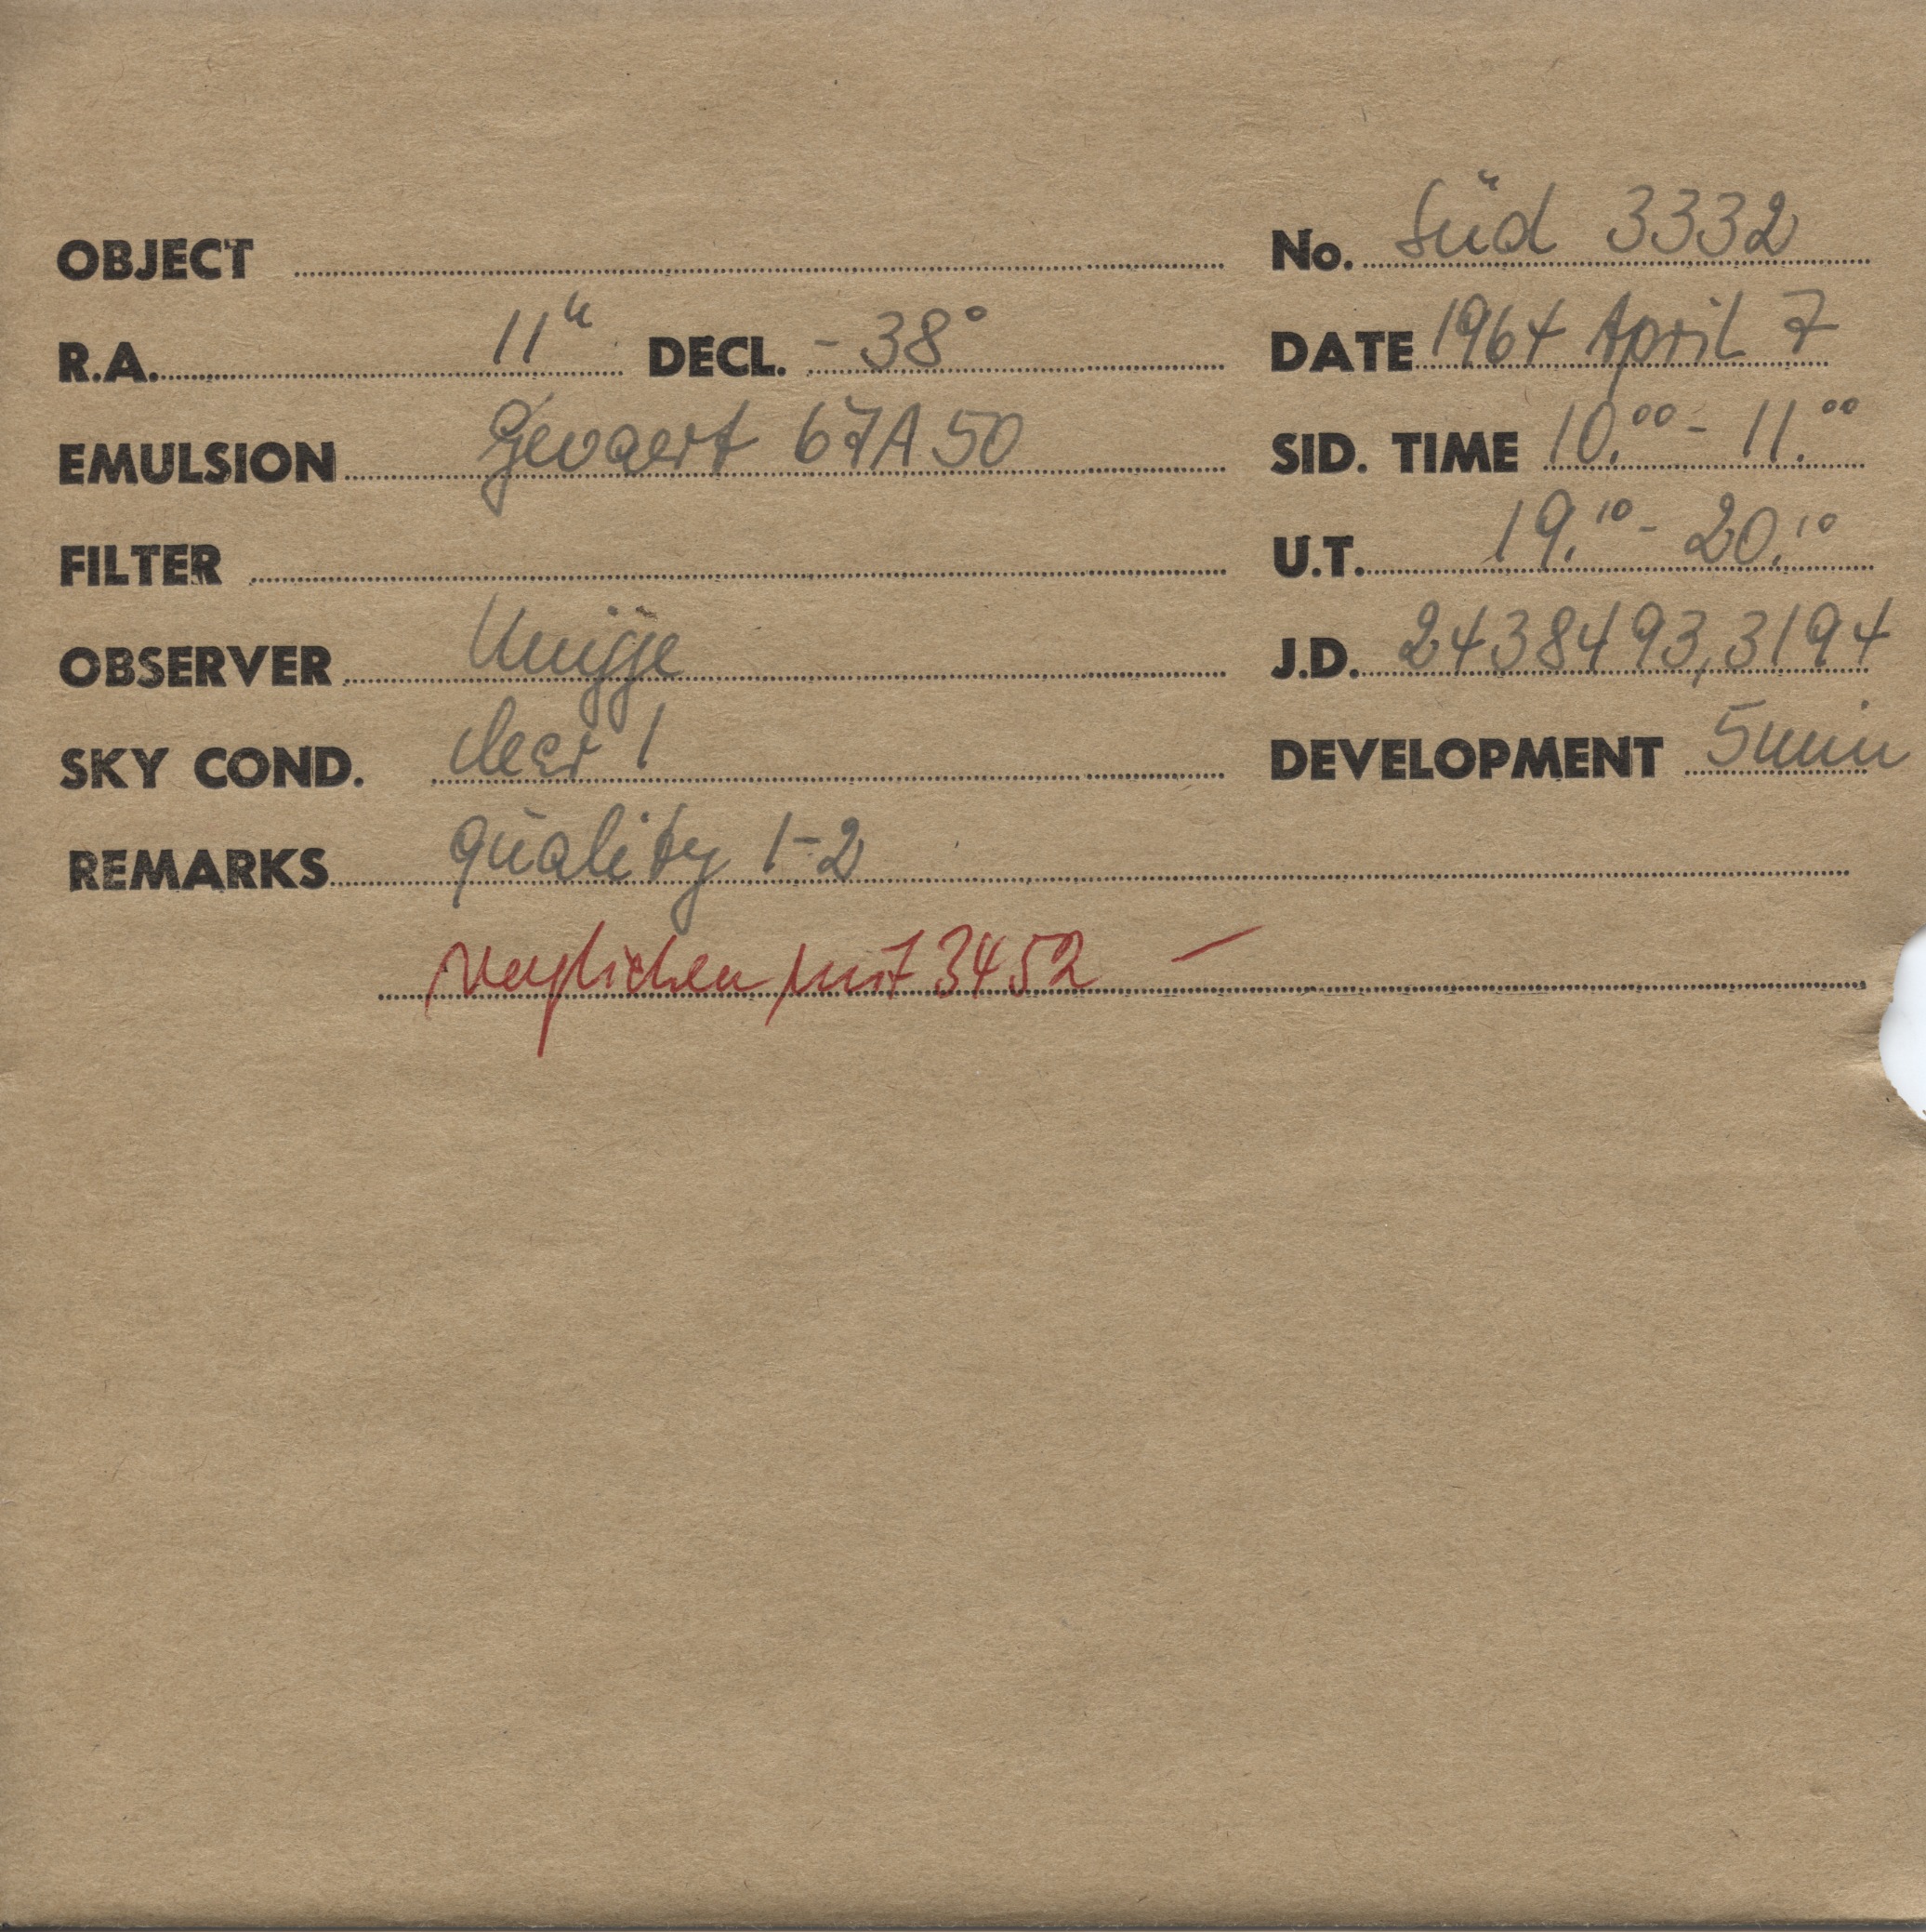 OBJECT No. Süd 3332
R.A. 11h DECL. -38° DATE 1964 April 7
EMULSION Gevaert 67A50 SID. TIME 10.00 - 11.00
FILTER U.T. 19.10 - 20.10
OBSERVER J.D. 2438493,3194
SKY COND. clear 1 DEVELOPMENT 5min
REMARKS quality 1-2
verglichen mit 3452 —